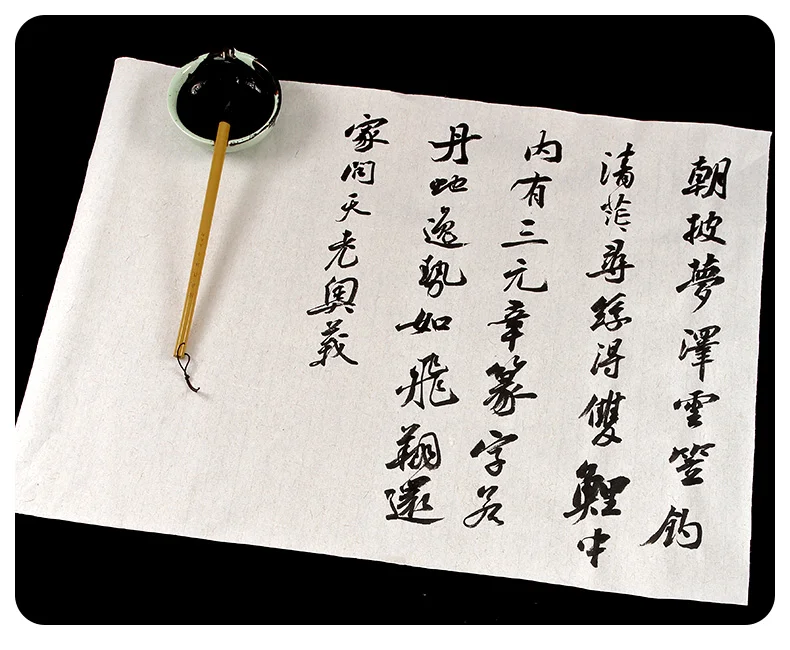 朝披夢澤雲笠釣
清茫〻尋絲得雙鯉中
内有三元章篆字若
丹蛇逸勢如飛翔還
家問天老奧義